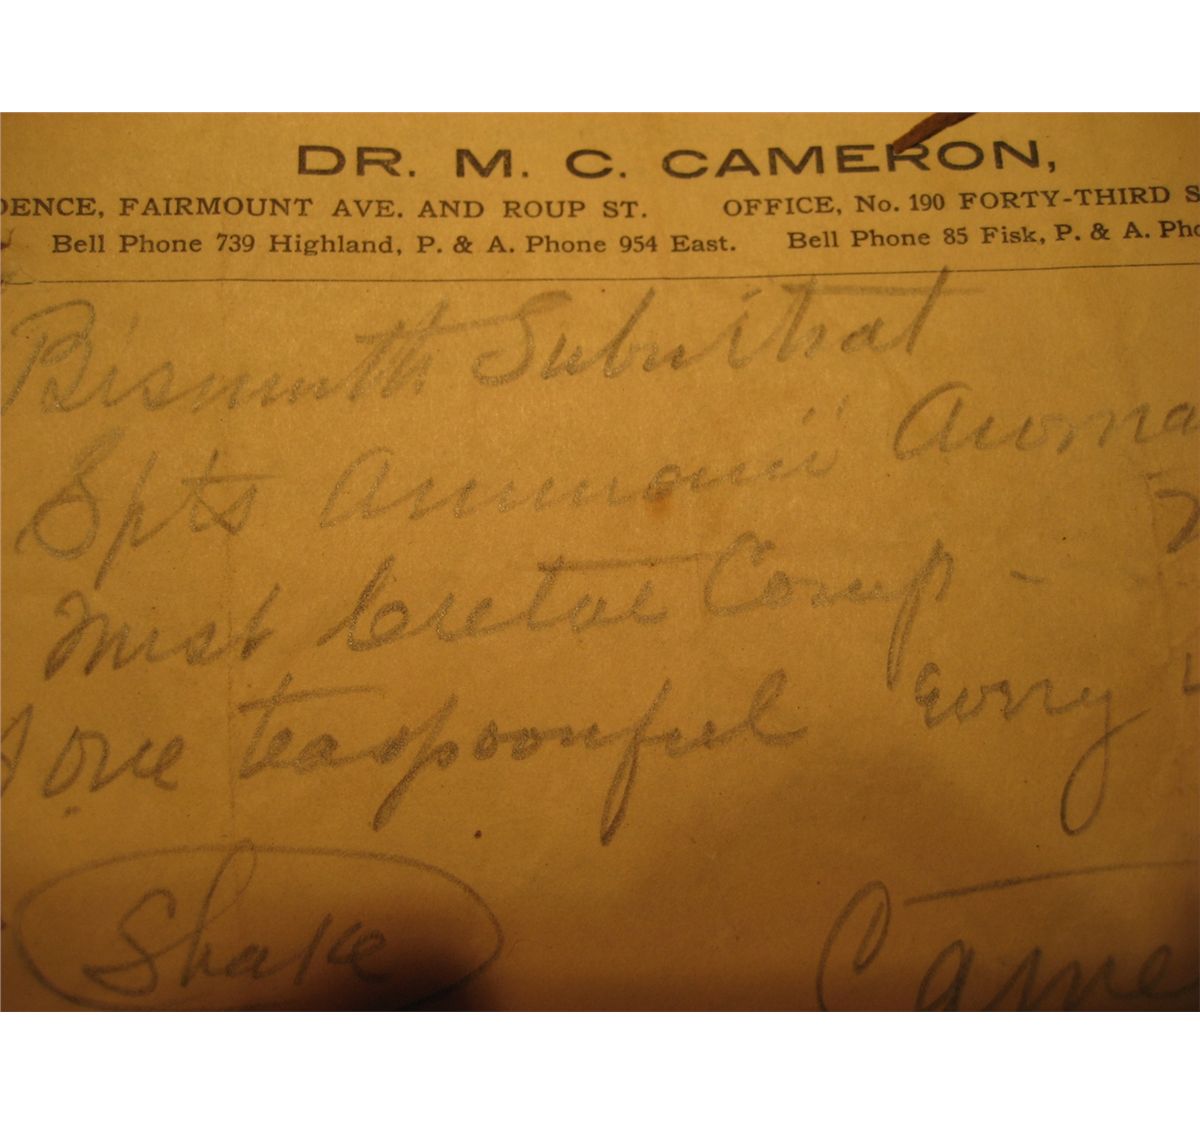 DR. M. C. CAMERON,
DENCE, FAIRMOUNT AVE. AND ROUP ST. OFFICE, No. 190 FORTY-THIRD S
Bell Phone 739 Highland, P. & A. Phone 954 East. Bell Phone 85 Fisk, P. & A. Pho
Bismuth Subnitrat
Spts Ammonii Aroma
Mist Cretae Comp -
one teaspoonful every 4
Shake
Came